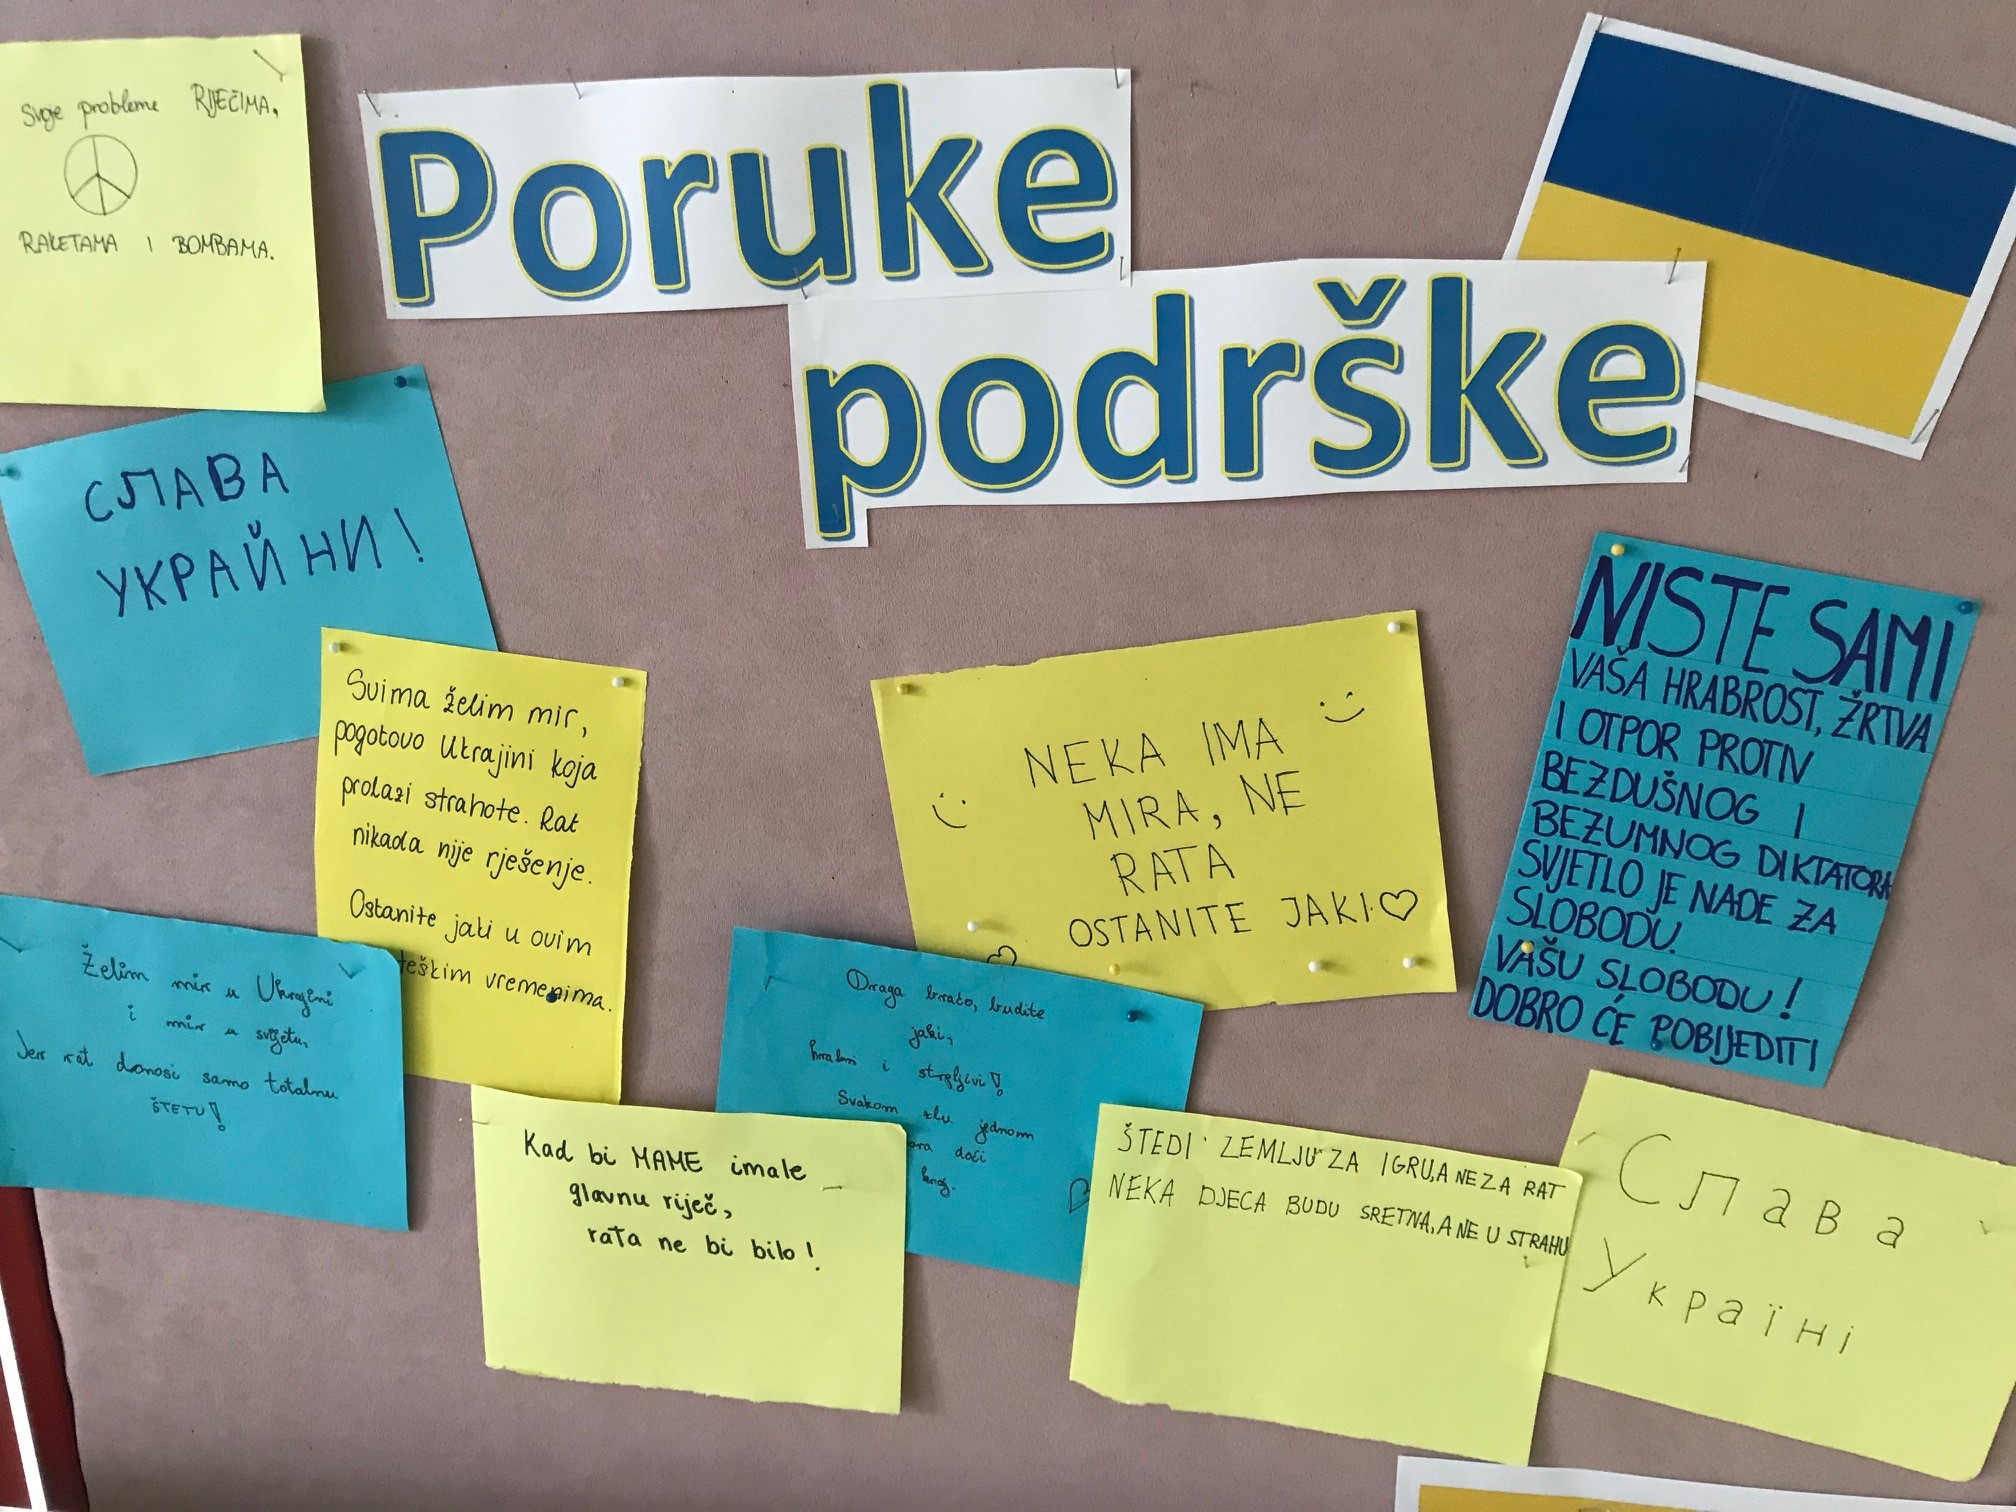 Poruke
podrške
Svoje probleme RIJEČIMA,
RAKETAMA I BOMBAMA.
СЛАВА
УКРАЙНИ!
Svima želim mir,
pogotovo Ukrajini koja
prolazi strahote. Rat
nikada nije rješenje.
Ostanite jaki u ovim
teškim vremenima.
NEKA IMA
MIRA, NE
RATA
OSTANITE JAKI
NISTE SAMI
VAŠA HRABROST, ŽRTVA
I OTPOR PROTIV
BEZDUŠNOG I
BEZUMNOG DIKTATORA
SVJETLO JE NADE ZA
SLOBODU.
VAŠU SLOBODU!
DOBRO ĆE POBIJEDITI
Želim mir u Ukrajini
i mir u svijetu,
Jer rat donosi samo totalnu
ŠTETU!
Draga braćo, budite
jaki,
hrabri i strpljivi!
Svakom zlu jednom
doći
kraj.
Kad bi MAME imale
glavnu riječ,
rata ne bi bilo!
ŠTEDI ZEMLJU ZA IGRU, A NE ZA RAT
NEKA DJECA BUDU SRETNA, A NE U STRAHU
Слава
Україні